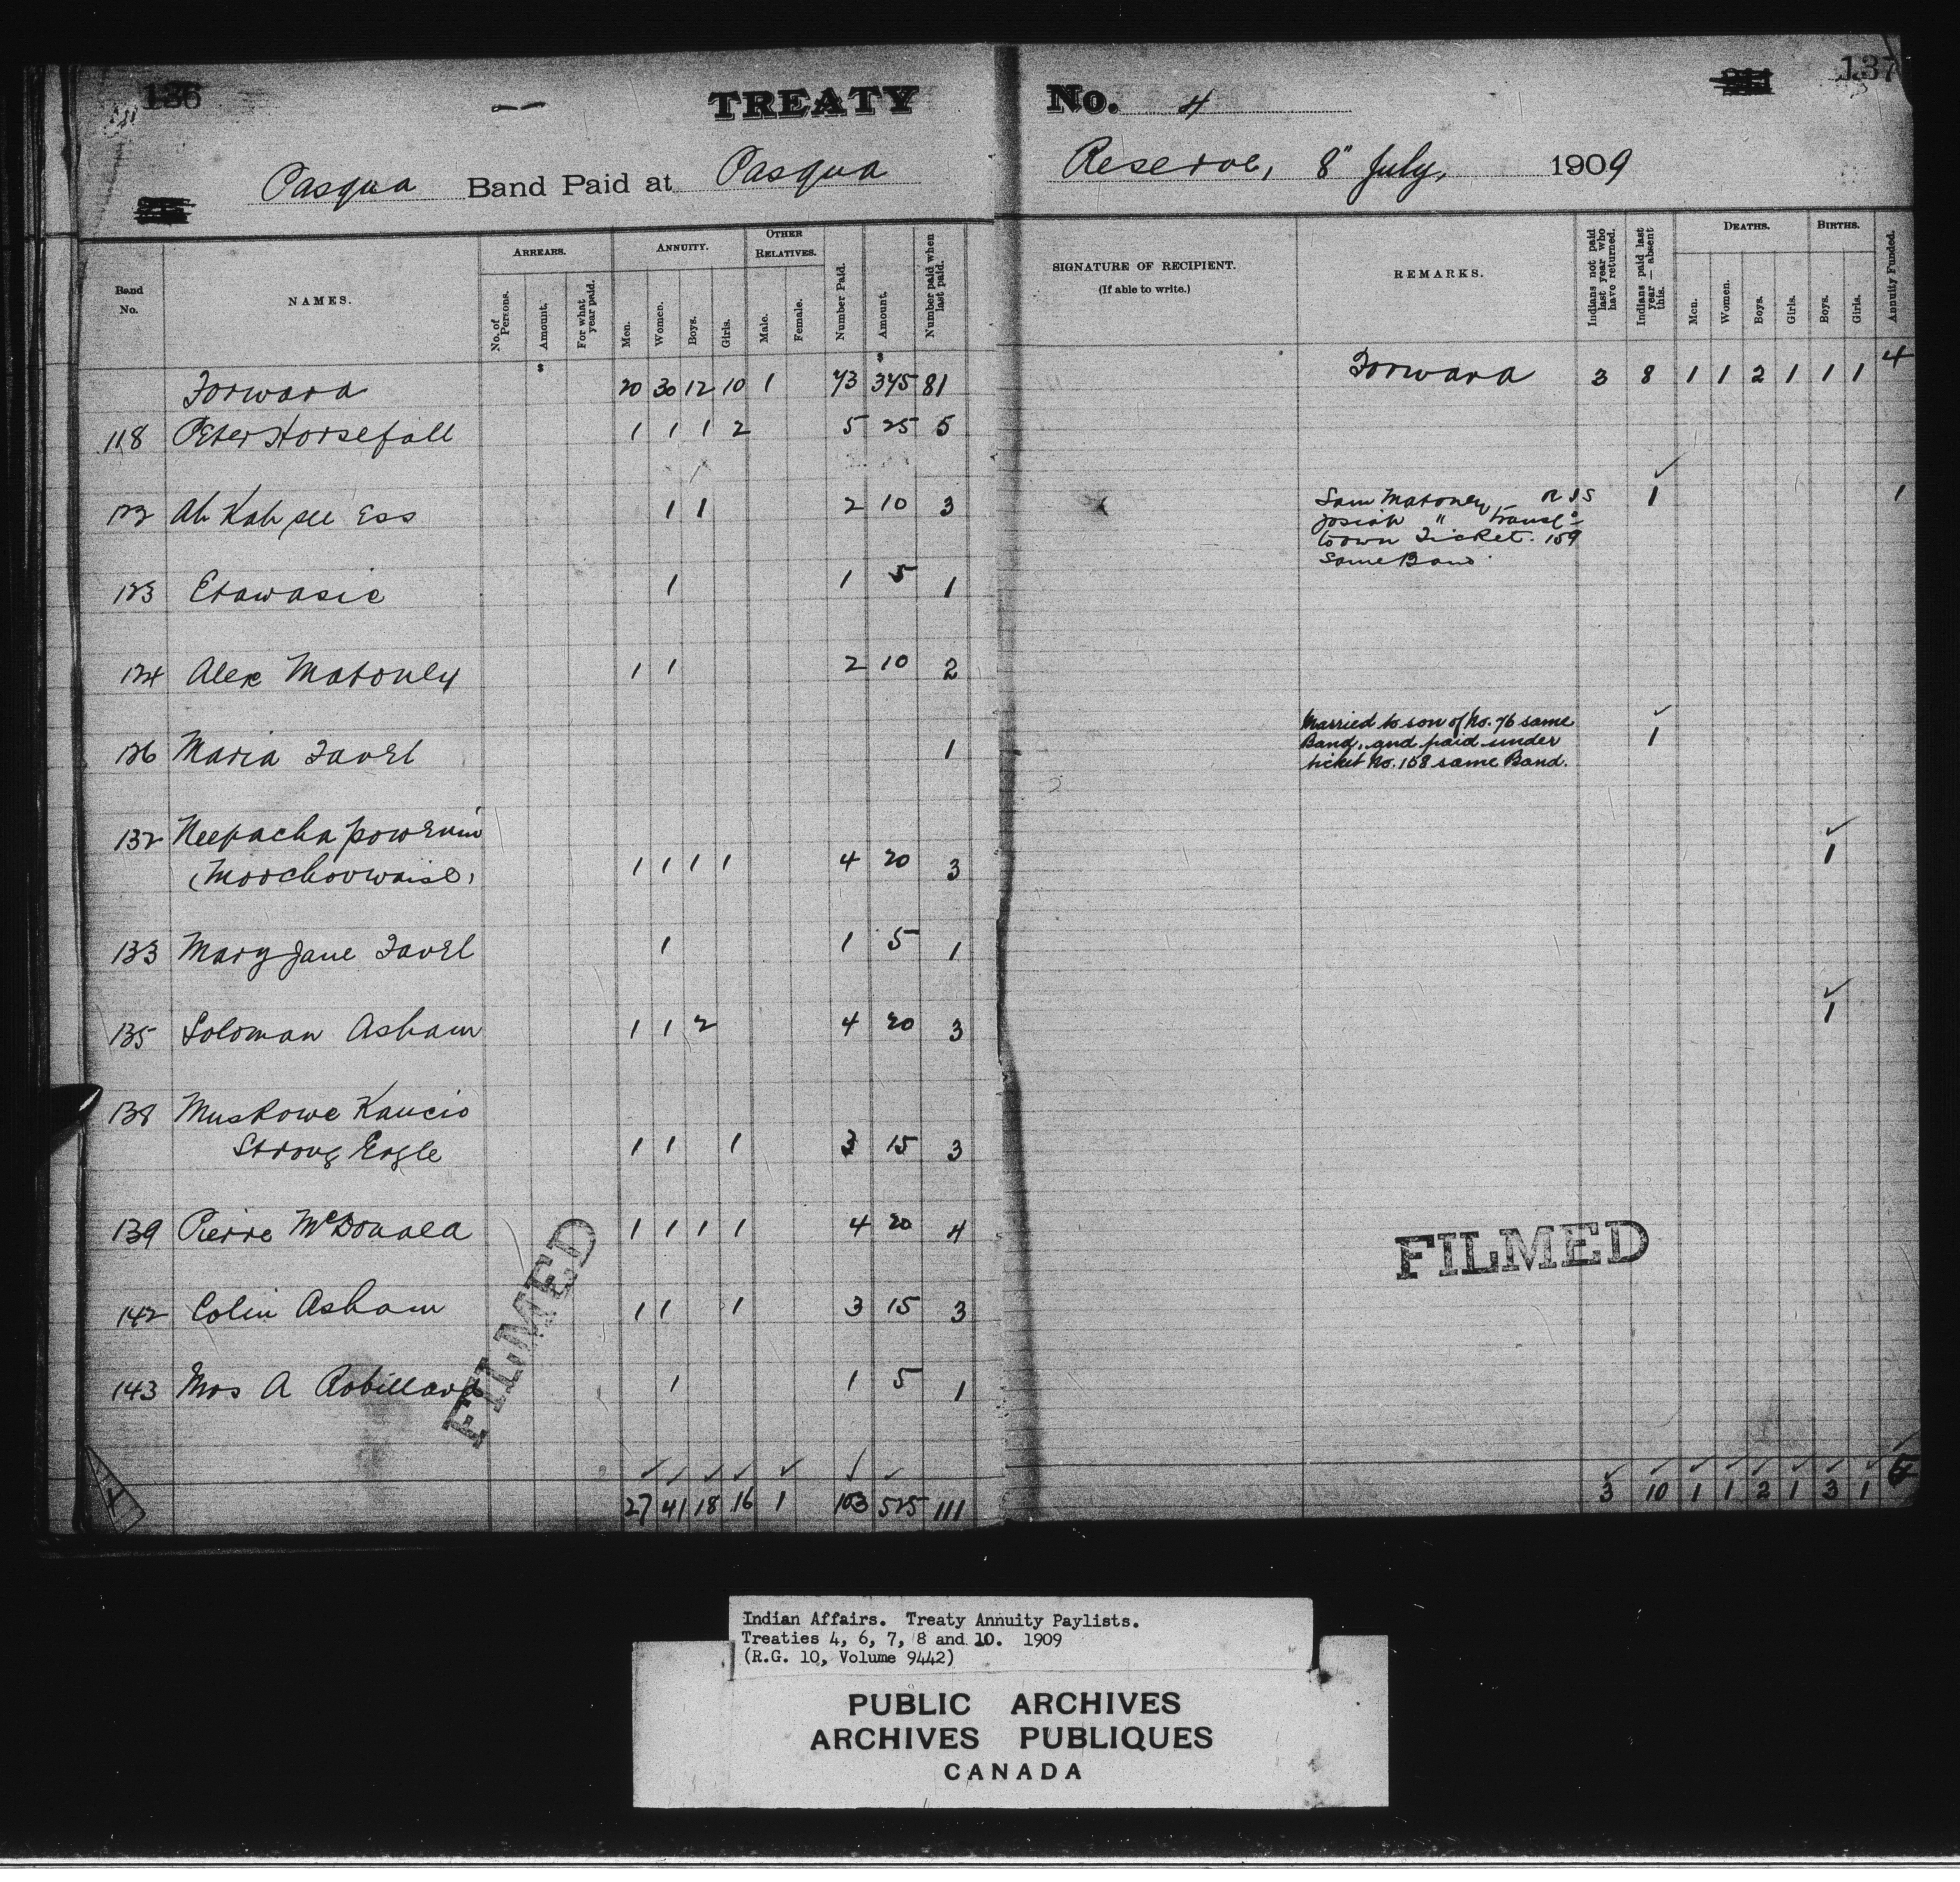 136
TREATY No. 4
137
Pasqua Band Paid at Pasqua Reserve, 8" July, 1909
Band No.
NAMES.
ARREARS.
No. of Persons.
Amount.
For what year paid.
ANNUITY.
Men.
Women.
Boys.
Girls.
OTHER RELATIVES.
Male.
Female.
Number Paid.
Amount.
Number paid when last paid.
SIGNATURE OF RECIPIENT.
(If able to write.)
REMARKS.
Indians not paid last year who have returned.
Indians paid last year — absent this.
DEATHS.
Men.
Women.
Boys.
Girls.
BIRTHS.
Boys.
Girls.
Annuity Funded.
Forward 20 30 12 10 1 73 375 81 Forward 3 8 1 1 2 1 1 1 4
118 Peter Horsefall 1 1 1 2 5 25 5
122 Ah Kah pee Ess 1 1 2 10 3 Sam Matoney 1 1
Josiah " Transf
to own Ticket. 159
Same Band
123 Etawasie 1 1 5 1
124 Alex Matoney 1 1 2 10 2
126 Maria Favel 1 Married to son of No. 76 same
Band, and paid under 1
ticket No. 158 same Band.
132 Neepacha powenin
(Moochoowaise) 1 1 1 1 4 20 3 1
133 Mary Jane Favel 1 1 5 1
135 Soloman Asham 1 1 2 4 20 3 1
138 Muskowe Kaucio
Strong Eagle 1 1 1 3 15 3
139 Pierre McDonald 1 1 1 1 4 20 4
142 Colin Asham 1 1 1 3 15 3
143 Mrs A Robillard 1 1 5 1
27 41 18 16 1 103 525 111 3 10 1 1 2 1 3 1
FILMED
FILMED
Indian Affairs. Treaty Annuity Paylists.
Treaties 4, 6, 7, 8 and 10. 1909
(R.G. 10, Volume 9442)
PUBLIC ARCHIVES
ARCHIVES PUBLIQUES
CANADA